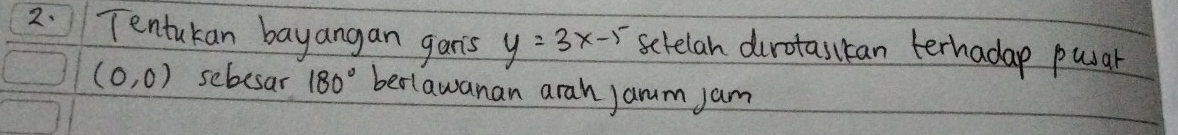 2. Tentukan bayangan garis y = 3x-5 setelah dirotasikan terhadap pusat
(0,0) sebesar 180° berlawanan arah jarum jam